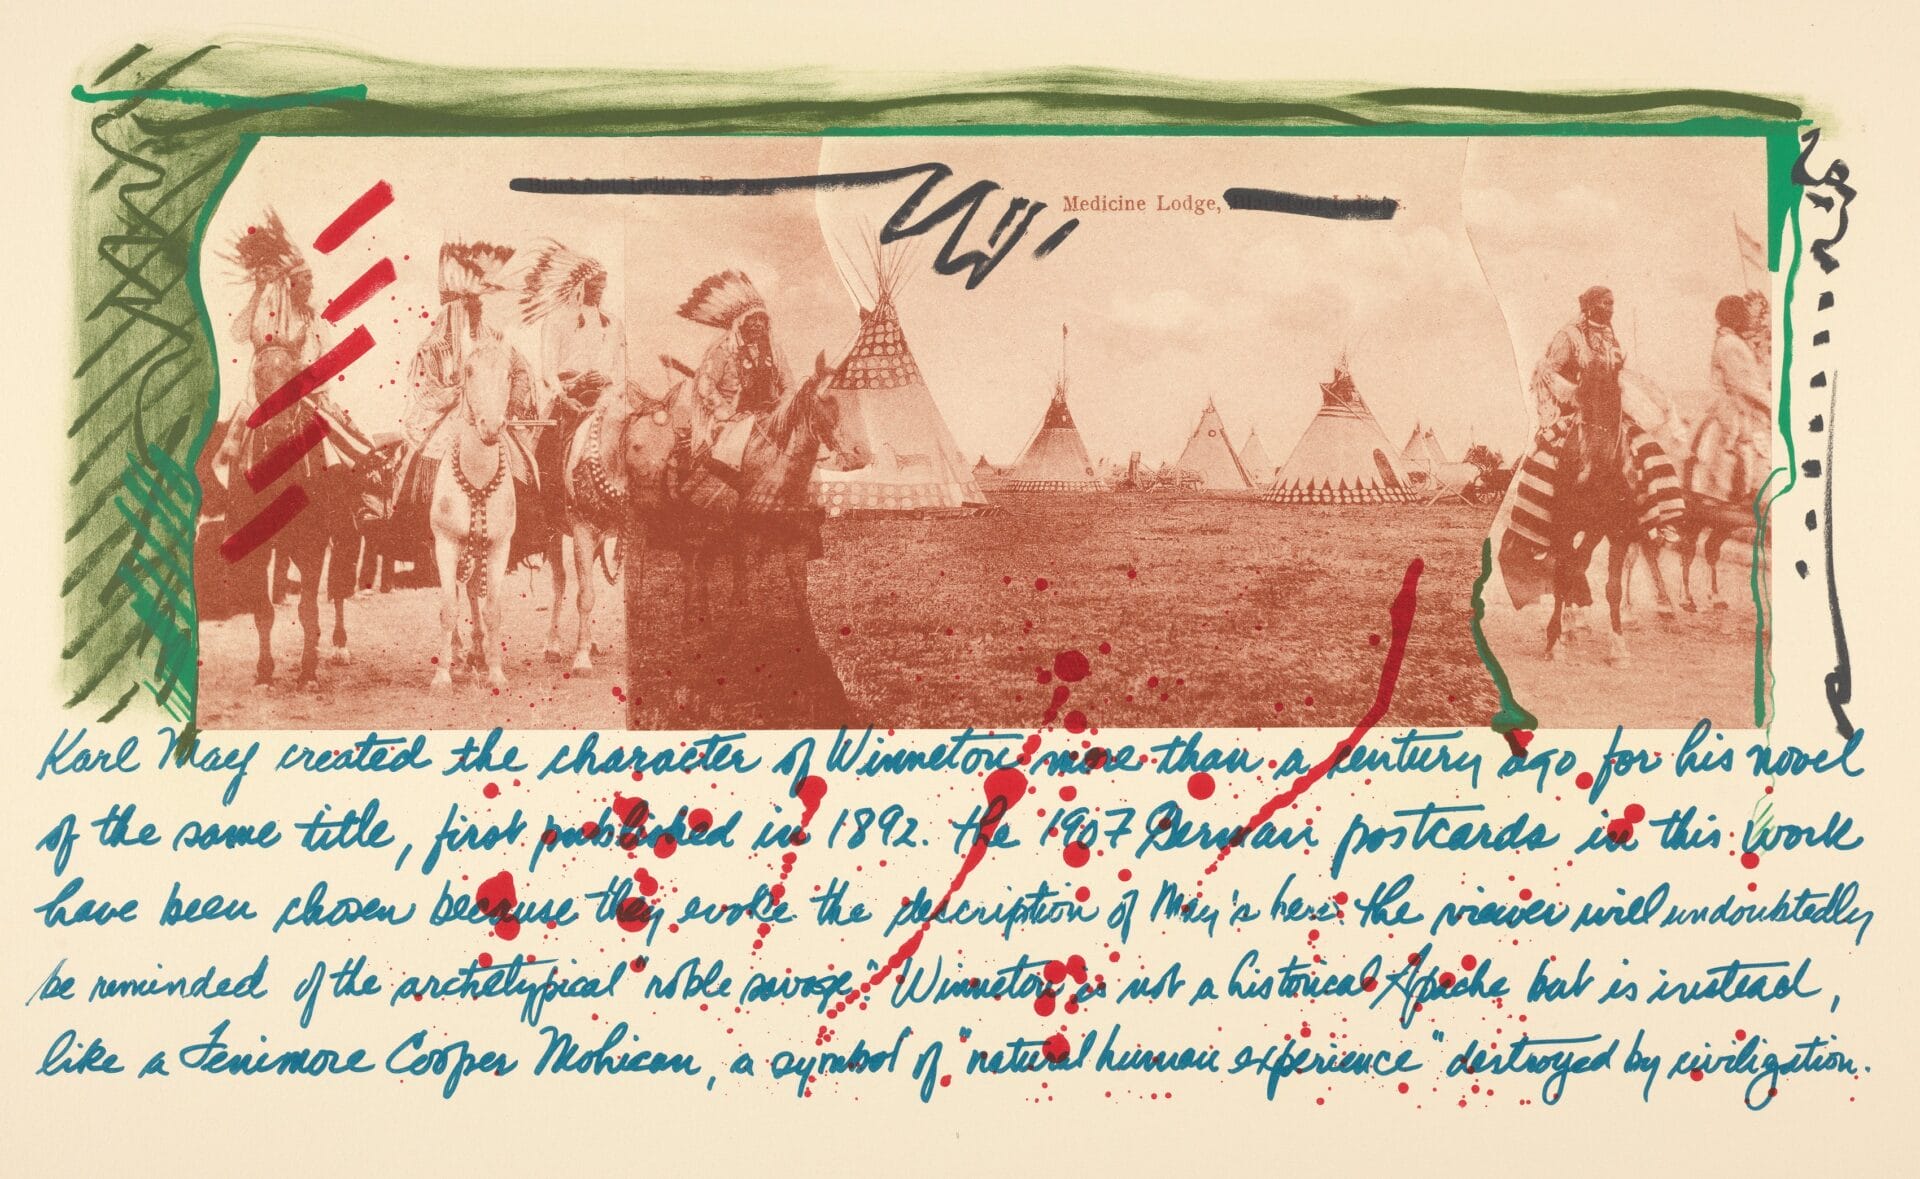 Medicine Lodge,
Karl May created the character of Winnetou more than a century ago for his novel
of the same title, first published in 1892. The 1907 German postcards in this work
have been chosen because they evoke the description of May's hero. The viewer will undoubtedly
be reminded of the archetypical "noble savage". Winnetou is not a historical Apache but is instead,
like a Fenimore Cooper Mohican, a symbol of "natural human experience" destroyed by civilization.